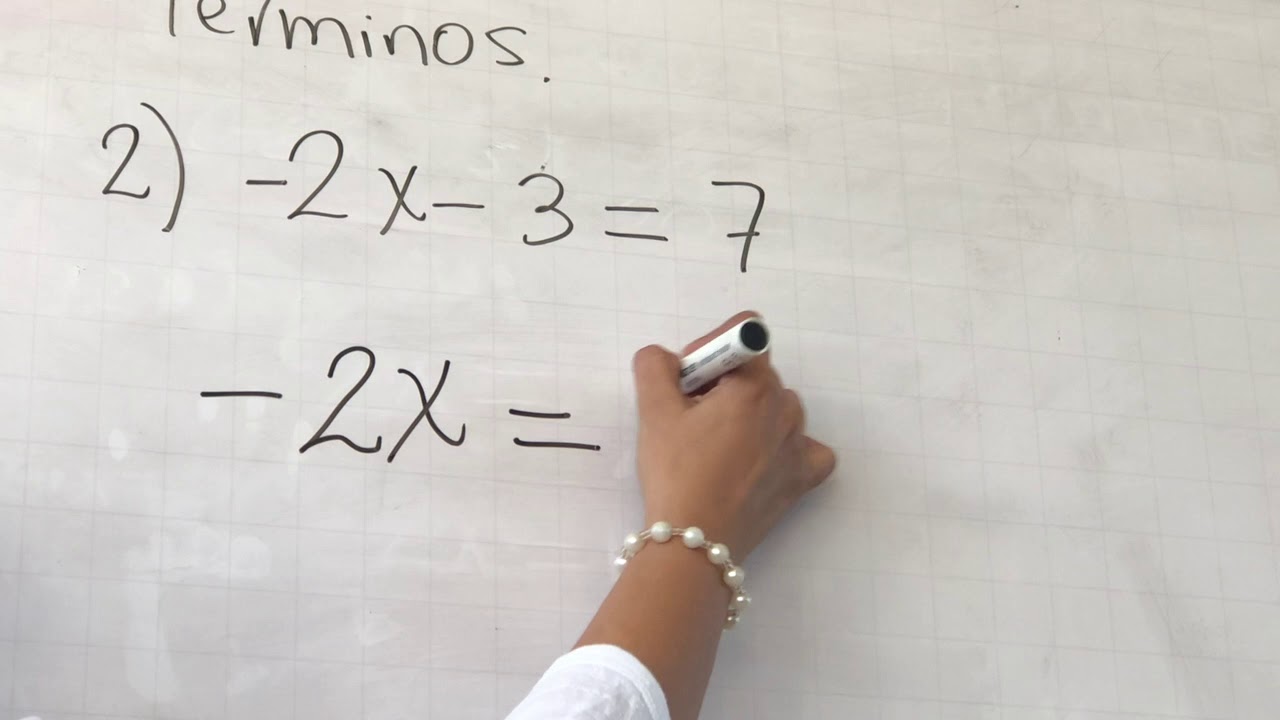 Terminos.
2) -2x - 3 = 7
- 2x =